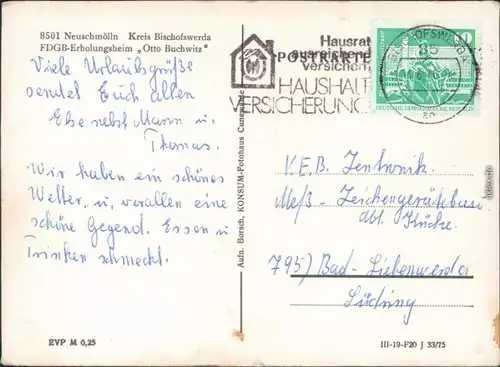 8501 Neuschmölln Kreis Bischofswerda
FDGB-Erholungsheim „Otto Buchwitz"
Viele Urlaubsgrüße
sendet Euch allen
Else nebst Mann u.
Thomas.
Wir haben ein schönes
Wetter, u. vorallen eine
schöne Gegend. Essen u
Trinken schmeckt.
EVP M 0,25
Aufn. Bersch, KONSUM-Fotohaus Cunewalde
POSTKARTE
Hausrat
ausreichend
versichern
HAUSHALT
VERSICHERUNG
BISCHOFSWERDA
85
10
DEUTSCHE DEMOKRATISCHE REPUBLIK
V.E.B. Zentronik.
Meß- Zeichengerätebau
Abt. Küche.
795) Bad-Liebenwerda
Südring
III-19-F20 J 33/75